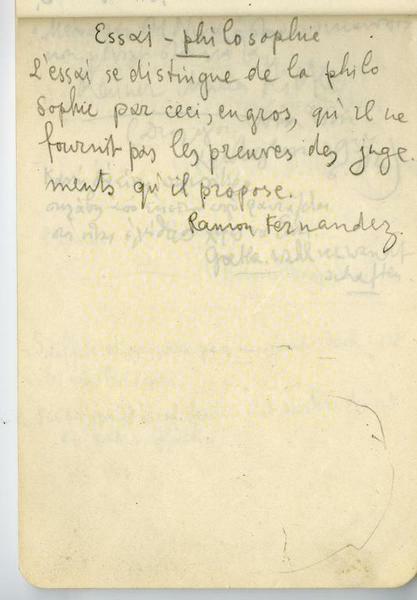 Essai - philosophie
L'essai se distingue de la philo
sophie par ceci, en gros, qu'il ne
fournit pas les preuves des juge-
ments qu'il propose.
Ramon Fernandez.